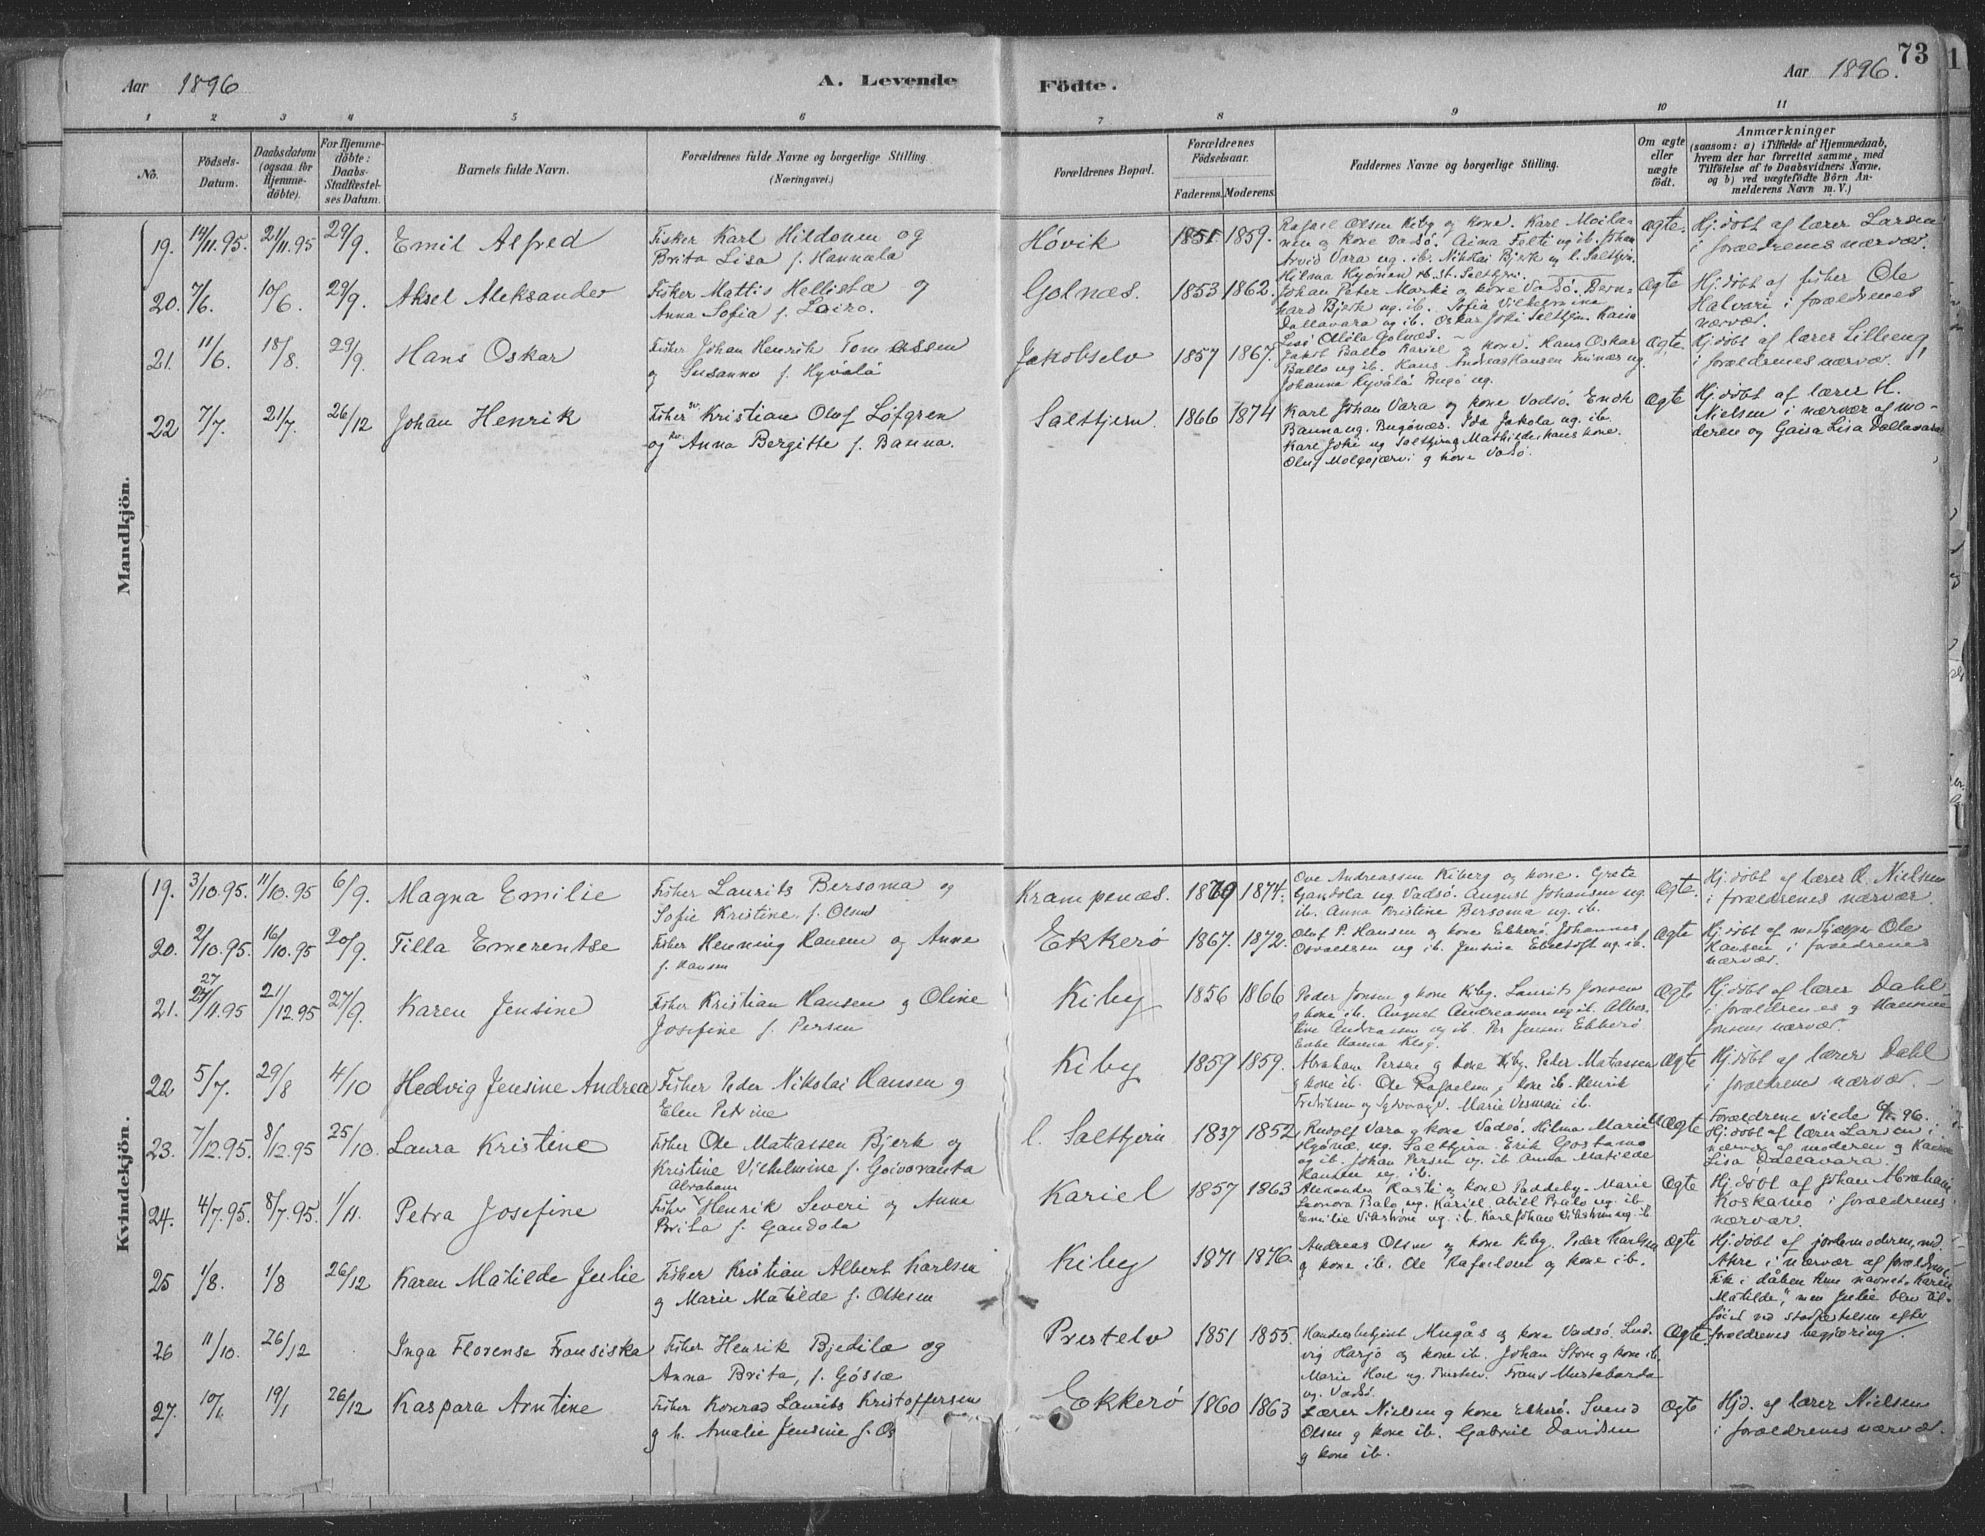 Aar 1896
A. Levende
Fødte.
Aar 1896.
73
1 2 3 4 5 6 7 8 9 10 11
No.
Fødsels-Datum.
Daabsdatum (ogsaa for Hjemmedøbte).
For Hjemmedøbte: Daabs-Stadfæstelses Datum.
Barnets fulde Navn.
Forældrenes fulde Navne og borgerlige Stilling.
(Næringsvei.)
Forældrenes Bopæl.
Forældrenes Fødselsaar.
Faderens. Moderens.
Faddernes Navne og borgerlige Stilling.
Om ægte eller uægte født.
Anmærkninger
(saasom: a) i Tilfælde af Hjemmedaab,
hvem der har forrettet samme, med
Tilføielse af to Daabsvidners Navne,
og b) ved uægtefødte Børn Anmelderens Navn m. V.)
Mandkjön.
19. 14/11.95. 21/11.95 29/9. Emil Alfred
Fisker Karl Hildonen og
Brita Lisa f. Hannala
Høvik 1851 1859.
Rafael Olsen Kiby og kone. Karl Moila-
nen og kone Vadsø. Aina Felti ug. ib. Johan
Arvid Vara ug. ib. Nikkai Bjerk ug l. Saltfjern.
ægte.
Hj.døbt af lærer Larsen
i forældrenes nærvær.
20. 7/6. 10/6. 29/9. Aksel Aleksander
Fisker Mattis Helliska og
Anna Sofia f. Lairo.
Golnæs. 1853 1862.
Johan Peter Marki og kone Vadsø. Bern-
hard Bjerk ug. ib. Sofia Vilhelmina
Dallavara ug ib.
ægte
Hj.døbt af fisker Ole
Halvari i forældrenes
nærvær.
21. 11/6. 18/8. 29/9. Hans Oskar
Fisker Johan Henrik Tomassen
og Susanna f. Hyvälä
Jakobselv 1857 1867.
Jakob Ballo Kariel og kone. Hans Oskar
Ballo ug ib. Hans Andreas Hansen
Johanna Hyvälä Bugø ug.
ægte.
Hj.døbt af lærer Lilleeng,
i forældrenes nærvær.
22 7/7. 21/7. 26/12 Johan Henrik
Fisker Kristian Olof Løfgren
og Anna Bergitte f. Banna.
Saltfjern. 1866 1874
Karl Johan Vara og kone Vadsø.
Banna ug. Bugønæs. Ida Jakola ug. ib.
Karl Joki ug Saltfjern og Mathilde hans kone.
Oluf Molgojærvi og kone Vadsø.
ægte
Hj.døbt af lærer H.
Nielsen i nærvær af mo-
deren og Gaisa Lisa Dallavara
Kvindekjön.
19. 3/10.95. 11/10.95 6/9. Magna Emilie
Fisker Laurits Bersoma og
Sofie Kristine f. Olsen
Krampenæs. 1869 1874.
Ove Andreassen Kiberg og kone. Grete
Gandola ug. Vadsø. August Johansen ug.
ib. Anna Kristine Bersoma ug. ib.
ægte.
Hj.døbt af lærer H. Nielsen
i forældrenes nærvær.
20. 2/10.95. 16/10.95 20/9. Tilla Emerentse
Fisker Henning Hansen og Anne
f. Hansen
Ekkerø 1867. 1872.
Oluf P. Hansen og kone Ekkerø. Johannes
Osvaldsen ug ib. Jensine Ebeltoft ug. ib.
ægte
Hj.døbt af Ole
Hansen i forældrenes
nærvær.
21. 27/11.95 21/12.95 27/9. Karen Jensine
Fisker Kristian Hansen og Oline
Josefine f. Persen
Kiby 1856 1866
Peder Jonsen og kone Kiby. Laurits Jonsen
og kone ib. August Andreassen ug ib. Alber-
tine Andreassen ug ib. Per Jensen Ekkerø
Enke Hanna Klog.
ægte
Hj.døbt af lærer Dahl
i forældrenes og Hanna
Jonsens nærvær.
22 5/7. 29/8 4/10 Hedvig Jensine Andrea
Fisker Peder Nikolai Hansen og
Elen Petrine
Kiby 1859 1859.
Abraham Persen og kone Kiby. Peder Matiassen
og kone ib. Ole Rafaelsen og kone ib. Henrik
Fredriksen ug Marie ib.
ægte
Hj.døbt af lærer Dahl
i forældrenes nærvær.
23. 7/12.95. 8/12.95 25/10. Laura Kristine
Fisker Ole Matiassen Bjerk og
Kristine Vilhelmine f. Goivoranta
l. Saltfjern 1837 1852
Rudolf Vara og kone Vadsø. Hilma Marie
ug. Saltfjern. Erik Gostamo
ug ib. Johan Persen ug. ib. Anna Matilde
Hansen ug. ib.
uægte
Forældrene viede 96.
Hj.døbt af lærer Larsen i
nærvær af moderen og
Lisa Dallavara.
24. 4/7.95. 8/7.95. 1/11. Petra Josefine
Abraham
Fisker Henrik Severi og Anna
Brita f. Gandola
Kariel 1857 1863
Alexander Rasti og kone Paddeby. Marie
Leonora Balo ug. Kariel. Abiel Balo ug. ib.
Emilie Vikstrøm ug. ib. Karl Johan Vikstrøm ug. ib.
ægte
Hj.døbt af Johan Abraham
Koskamo i forældrenes
nærvær.
25 1/8. 1/8 26/12 Karen Matilde Julie
Fisker Kristian Albert Karlsen
og Marie Matilde f. Olsen
Kiby 1871 1876.
Andreas Olsen og kone Kiby. Peder Karlsen
og kone ib. Ole Rafaelsen og kone ib.
ægte
Hj.døbt af jordemoderen, md.
Akre i nærvær af forældrene.
Fik i dåben kun navnet „Karen
Matilde", men Julie blev til-
føiet ved stadfestelsen efter
forældrenes begjæring
26 11/10. 26/12 Inga Florense Fransiska
Fisker Henrik Bjedilæ og
Anna Brita, f. Gøssæ
Prestelv 1851 1855.
Handelsbetjent Mugås og kone Vadsø. Lud-
vig Harjo og kone ib. Johan Store og kone ib.
Marie ug. Prestelv. Frans Mustabarda
ug. Vadsø.
ægte
27. 10/6 19/1 26/12 Kaspara Arntine
Fisker Konrad Laurits Kristoffersen
og h. Amalie Jensine f.
Ekkerø 1860 1863
Lærer Nielsen og kone Ekkerø. Svend
Olsen og kone ib. Gabriel Danilsen
og kone ib.
ægte
Hjd. af lærer Nielsen
i forældrenes nærvær.